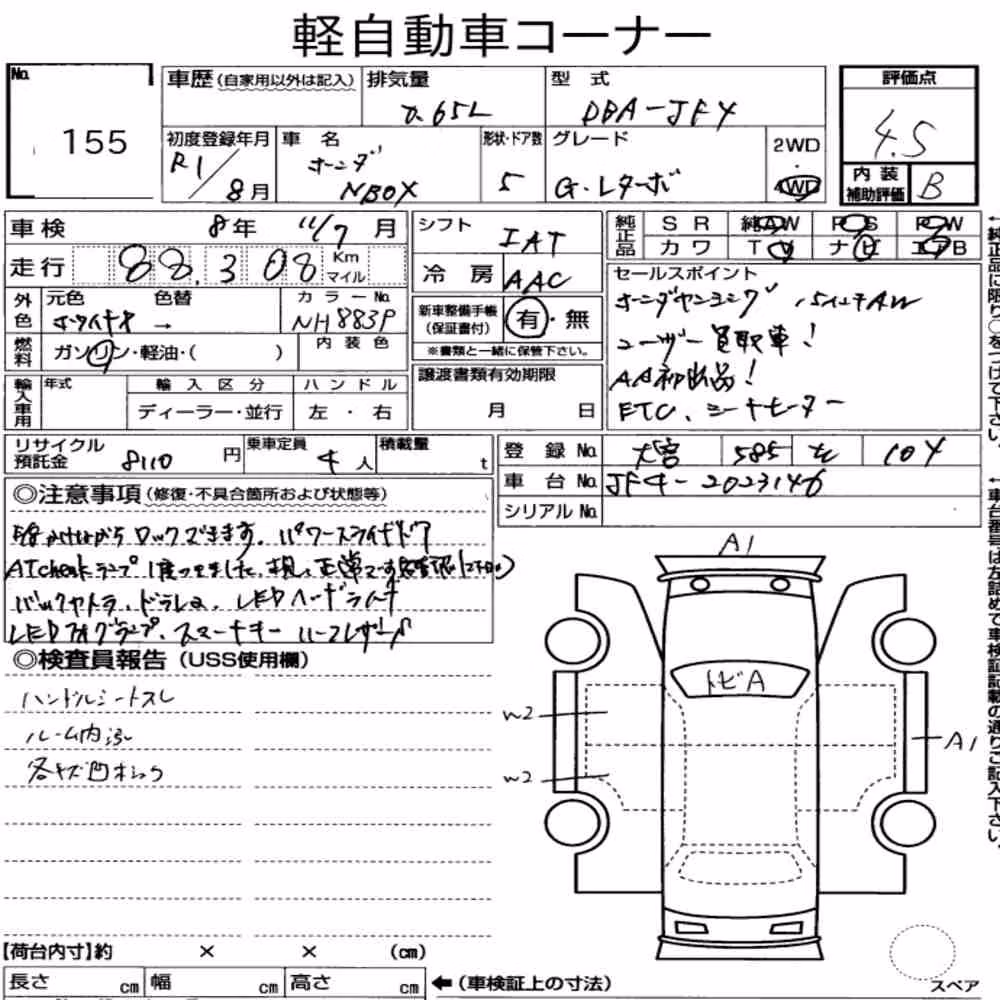 軽自動車コーナー
No. 155
車歴 (自家用以外は記入)
排気量 0.65L
型式 DBA-JF4
評価点 4.5
内装補助評価 B
初度登録年月 R1/8月
車名 ホンダ NBOX
形状・ドア数 5
グレード G・Lターボ
2WD・4WD
車検 8年 11/7月
走行 88,308 Km マイル
シフト IAT
冷房 AAC
純正品 SR 純正AW PS PW
カワ TV ナビ エアB
セールスポイント
ホンダセンシング
ユーザー買取車!
AA初出品!
ETC、シートヒーター
外色 元色 色替 カラーNo. NH883P
内装色
燃料 ガソリン・軽油・( )
新車整備手帳(保証書付) 有・無
※書類と一緒に保管下さい。
輸入車用 年式 輸入区分 ハンドル
ディーラー・並行 左・右
譲渡書類有効期限
月 日
リサイクル預託金 8110円
乗車定員 4人
積載量 t
登録No. 大宮 585 104
車台No. JF4-2023146
シリアルNo.
◎注意事項(修復・不具合箇所および状態等)
ロックできます。パワースライドドア
バックカメラ、ドラレコ、LEDヘッドライト
LEDフォグランプ、スマートキー ハーフレザー
◎検査員報告(USS使用欄)
ハンドルシートスレ
ルーム内汚
各キズ凹
A1
トビA
W2
W2
A1
【荷台内寸】約 × × (cm)
長さ cm 幅 cm 高さ cm
←(車検証上の寸法)
スペア
←純正品に限り○をつけて下さい。
←車台番号は左詰めで車検証記載の通りご記入下さい。